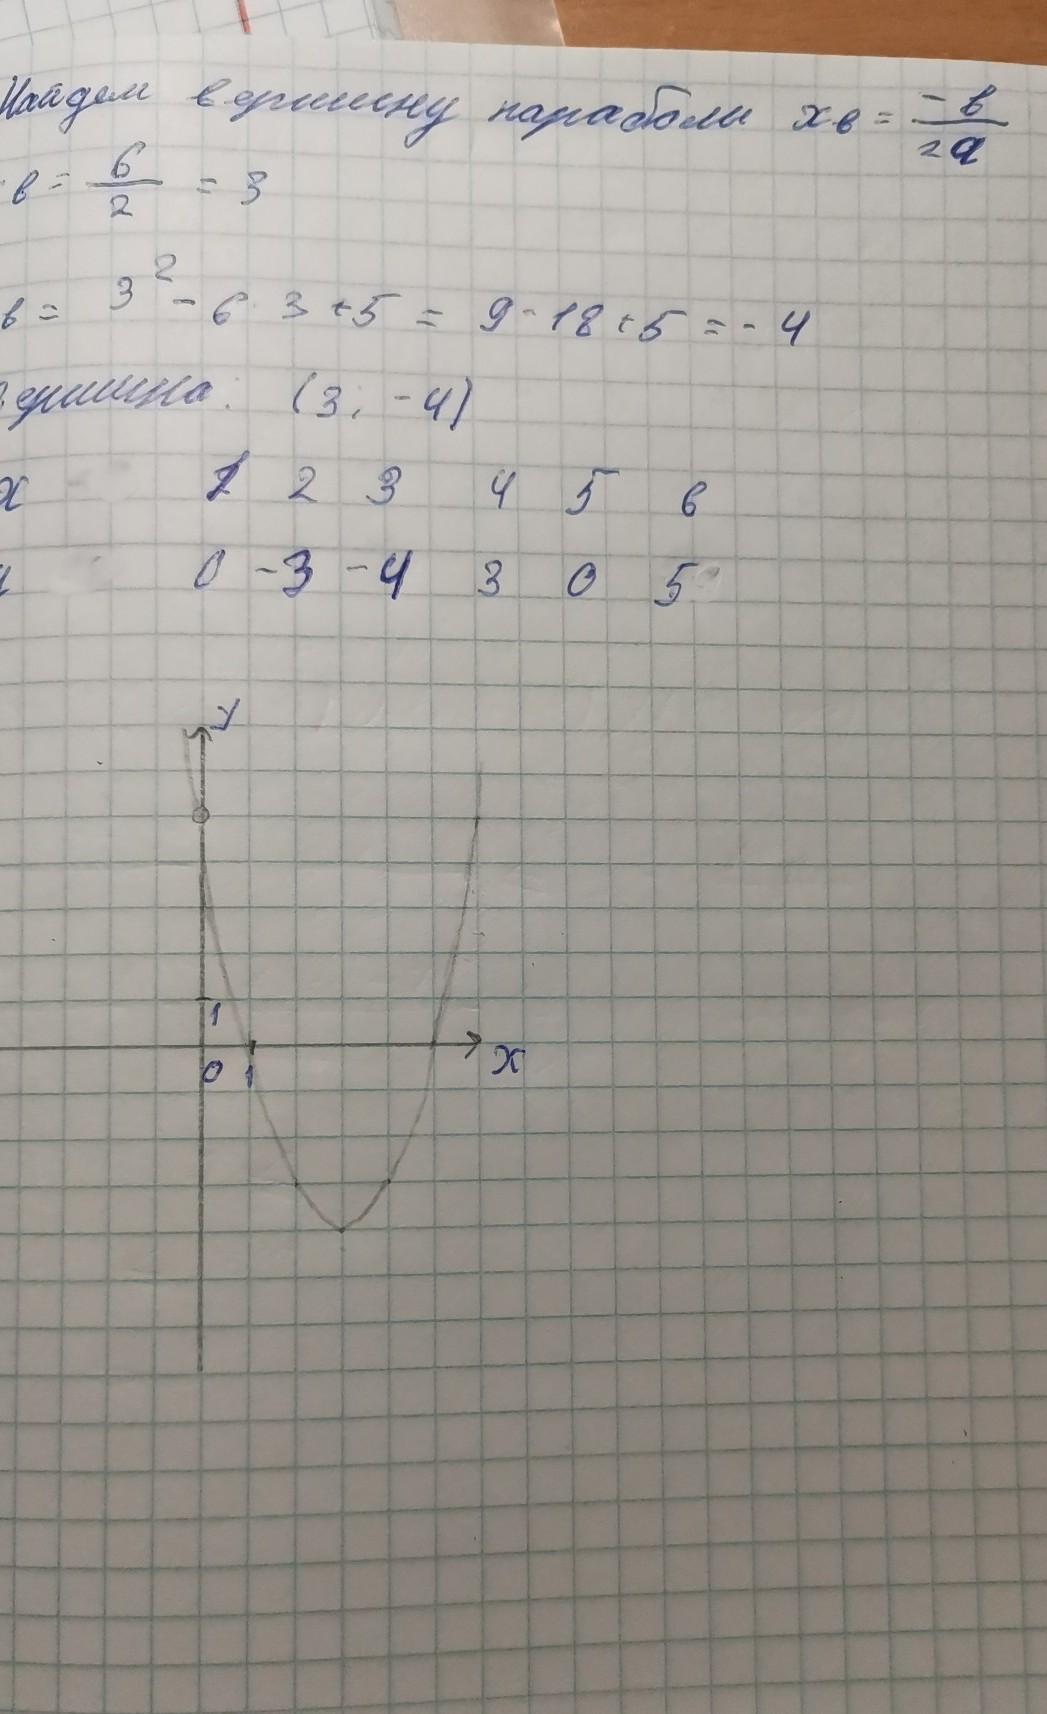 Найдем вершину параболы xв = -b/2a
в = 6/2 = 3
в = 3² - 6 · 3 + 5 = 9 - 18 + 5 = - 4
вершина: (3; -4)
x 1 2 3 4 5 6
y 0 -3 -4 3 0 5
y
1
0 1 x